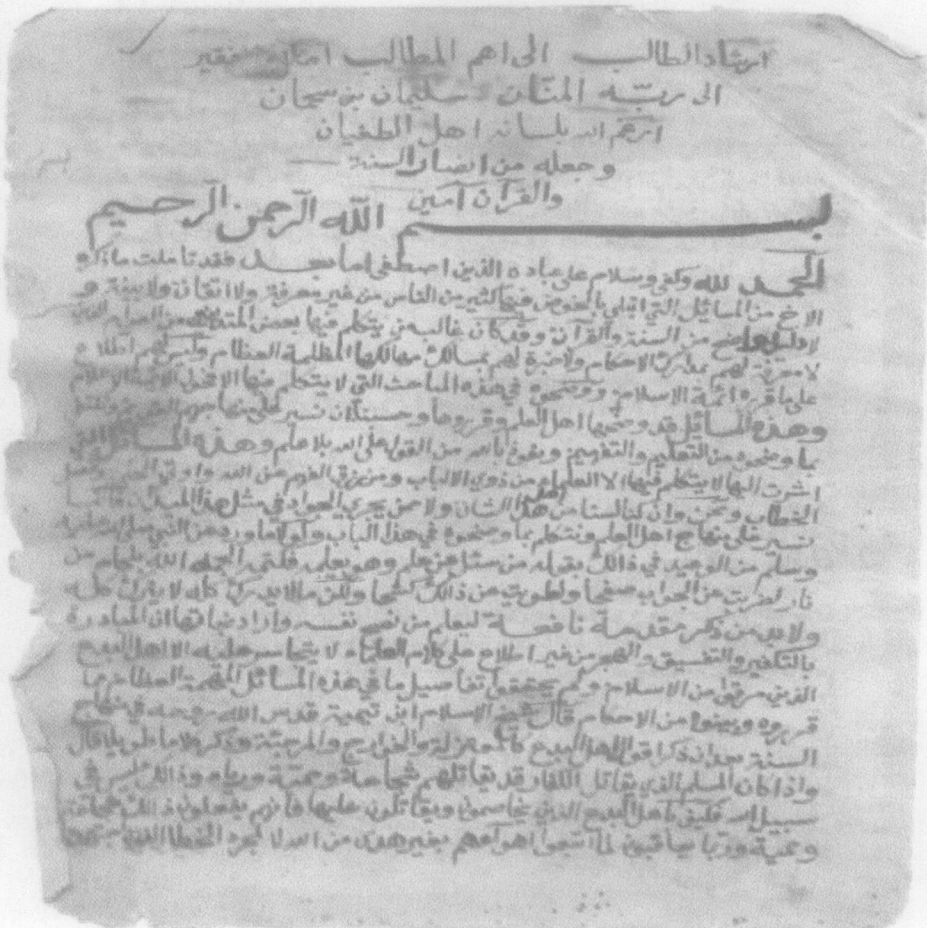 ارشاد الطالب الى اهم المطالب املاء فقير
الى ربه المنان سليمان بن سحمان
ارغم الله بلسانه اهل الطغيان
وجعله من انصار السنة
والقرآن آمين
بسم الله الرحمن الرحيم
الحمد لله وكفى وسلام على عباده الذين اصطفى اما بعد فقد تأملت ما ذكره
الاخ من المسائل التي ابتلي بالخوض فيها كثير من الناس من غير معرفة ولا اتقان ولا بينة و
لا دليل واضح من السنة والقرآن وقد كان غالب من يتكلم فيها بعض المتدينين من العوام الذين
لا معرفة لهم بمدارك الاحكام ولا خبرة لهم بمسالك مهالكها المظلمة العظام وليس لهم اطلاع
على ما قرره ائمة الاسلام ووضحوه في هذه المباحث التي لا يتكلم فيها الا فحول الائمة الاعلام
وهذه المسائل قد وضحها اهل العلم وقرروها وحسبنا ان نسير على منهاجهم
بما وضحوه من التعليم والتفهيم ونعوذ بالله من القول على الله بلا علم وهذه المسائل التي
اشرت اليها لا يتكلم فيها الا العلماء من ذوي الالباب ومن رزق الفهم عن الله واوتي الحكمة وفصل
الخطاب ونحن وان كنا لسنا من اهل هذا الشان ولا ممن يجري الجواد في مثل هذا الميدان فانما
نسير على منهاج اهل العلم ونتكلم بما وضحوه في هذا الباب ولولا ما ورد عن النبي صلى الله عليه
وسلم من الوعيد في ذالك بقوله من سئل عن علم وهو يعلمه فكتمه الجمه الله بلجام من
نار لضربت عن الجواب صفحا ولطويت عن ذالك كشحا ولكن ما لا يدرك كله لا يترك كله
ولابد من ذكر مقدمة نافعة ليعلم من نصح نفسه واراد نجاتها ان المبادرة
بالتكفير والتفسيق والهجر من غير اطلاع على كلام العلماء لا يتجاسر عليه الا اهل البدع
الذين مرقوا من الاسلام ولم يحققوا تفاصيل ما في هذه المسائل المهمة العظام مما
قرروه وبينوه من الاحكام قال شيخ الاسلام ابن تيمية قدس الله روحه في منهاج
السنة بعد ان ذكر اقوال اهل البدع كالمعتزلة والخوارج والمرجئة وذكر كلاما طويلا قال
واذا كان المسلم الذي يقاتل الكفار قد يقاتلهم شجاعة وحمية ورياء وذالك ليس في
سبيل الله فكيف باهل البدع الذين يخاصمون ويقاتلون عليها فانهم يفعلون ذالك شجاعة
وحمية وربما يعاقبون لما اتبعوا اهواءهم بغير هدى من الله لا لمجرد الخطأ الذي